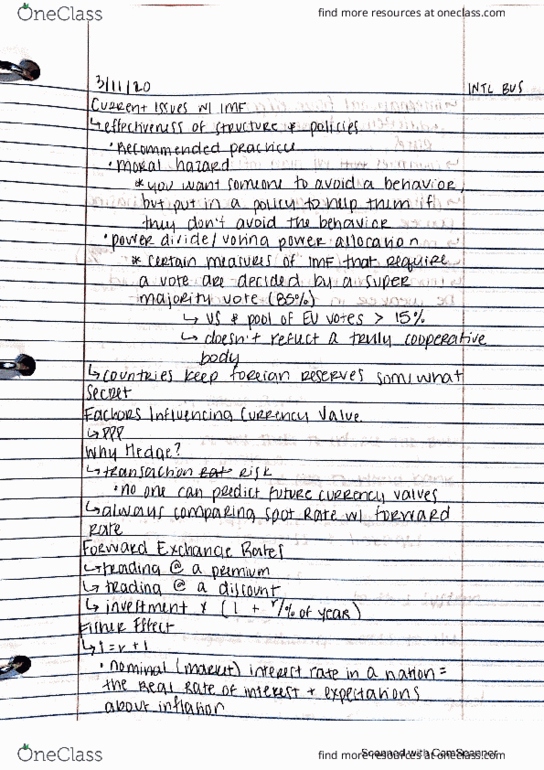 OneClass
find more resources at oneclass.com
3/11/20
INTL BUS
Current Issues w/ IMF
↳ effectiveness of structure & policies
• Recommended practice
• moral hazard
* you want someone to avoid a behavior,
but put in a policy to help them if
they don't avoid the behavior
• power divide/voting power allocation
* Certain measures of IMF that require
a vote are decided by a super
majority vote (85%)
↳ US & pool of EU votes > 15%
↳ doesn't reflect a truly cooperative
body
↳ countries keep foreign reserves somewhat
secret
Factors Influencing Currency Value
↳ PPP
Why Hedge?
↳ transaction risk
• no one can predict future currency values
↳ always comparing spot rate w/ forward
rate
Forward Exchange Rates
↳ trading @ a premium
↳ trading @ a discount
↳ investment x (1 + r/% of year)
Fisher Effect
↳ i = r + I
• nominal (market) interest rate in a nation =
the real rate of interest + expectations
about inflation
OneClass
find more resources at oneclass.com
Scanned with CamScanner